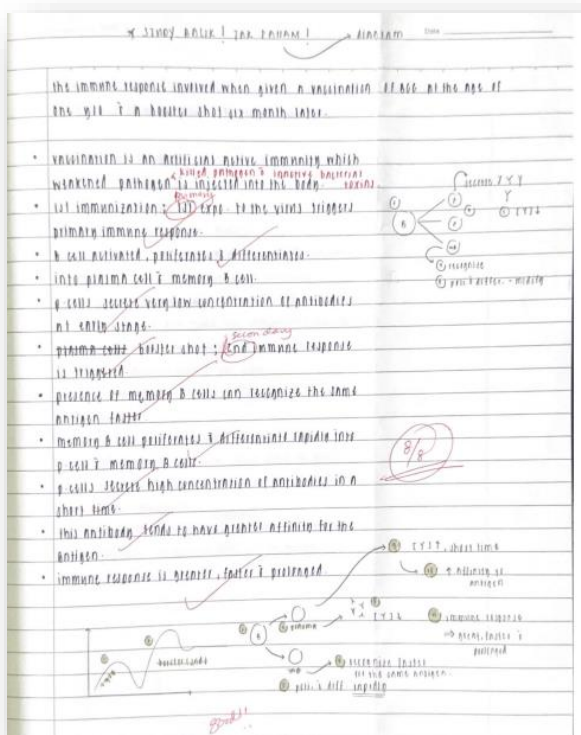 * STUDY BALIK! TAK FAHAM! → diagram Date
the immune response involved when given a vaccination of at the age of
one y/o & a booster shot six month later.
• vaccination is an artificial active immunity which
killed pathogen & inactive bacterial toxins.
weakened pathogen is injected into the body.
primary
• 1st immunization : 1st expo. to the virus triggers
primary immune response.
• B cell activated, proliferates & differentiates.
• into plasma cell & memory B cell.
• p cells secrete very low concentration of antibodies
at early stage.
secondary
• plasma cells booster shot : 2nd immune response
is triggered.
• presence of memory B cells can recognize the same
antigen faster
• memory B cell proliferates & differentiate rapidly into
p cell & memory B cells.
• p cells secrete high concentration of antibodies in a
short time.
• this antibody tends to have greater affinity for the
antigen.
• immune response is greater, faster & prolonged.
secretes Y Y Y
B
recognise
8/8
[Y] ↑, short time
↑ affinity to
antigen
B plasma
immune response
→ great, faster &
prolonged
recognise faster
for the same antigen.
proli. & diff rapidly
good!!